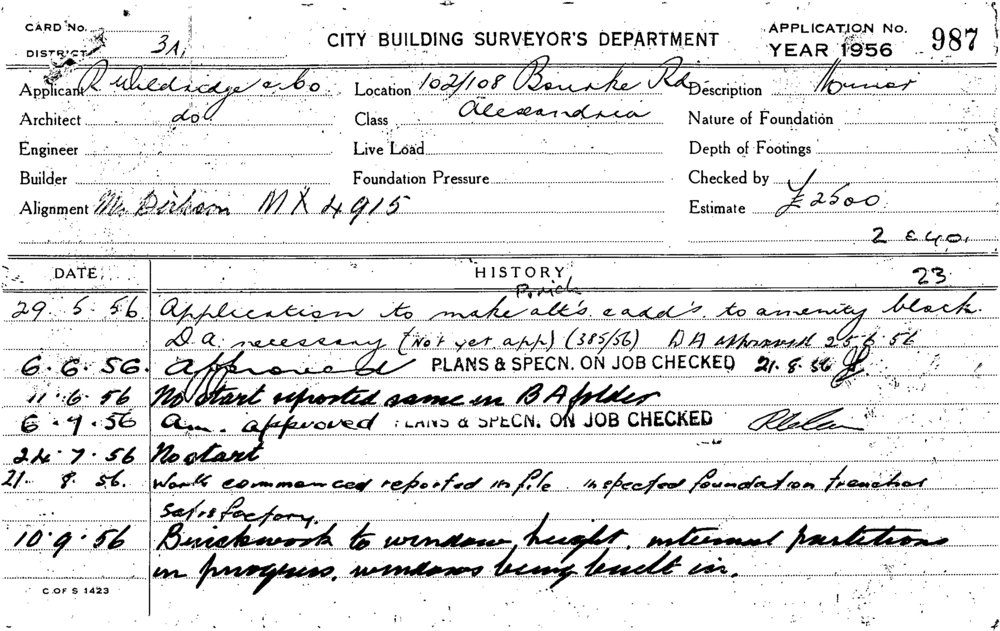 CARD No. CITY BUILDING SURVEYOR'S DEPARTMENT APPLICATION No. 987
DISTRICT 3A. YEAR 1956
Applicant R Weldridge & Co Location 102/108 Bourke Rd Description
Architect do Class Alexandria Nature of Foundation
Engineer Live Load Depth of Footings
Builder Foundation Pressure Checked by
Alignment Mr MX 4915 Estimate £2500
2
DATE HISTORY 23
29. 5. 56. Application to make alt's & add's to amenity block.
D.A. necessary (Not yet app) (385/56) DA approved 25.6.56
6.6.56. Approved PLANS & SPECN. ON JOB CHECKED 21.8.56
11.6.56 No start reported same in BA folder
6.9.56 Am. approved PLANS & SPECN. ON JOB CHECKED
24.7.56 No start
21. 8. 56. Work commenced reported in file. inspected foundation trenches
satisfactory.
10.9.56 Brickwork to window height. internal partitions
in progress, windows being built in.
C. OF S 1423